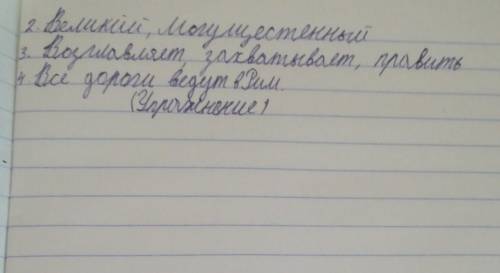 2. Великий, могущественный
3. Возглавляет, захватывает, править
4. Все дороги ведут в Рим.
(Упражнение)